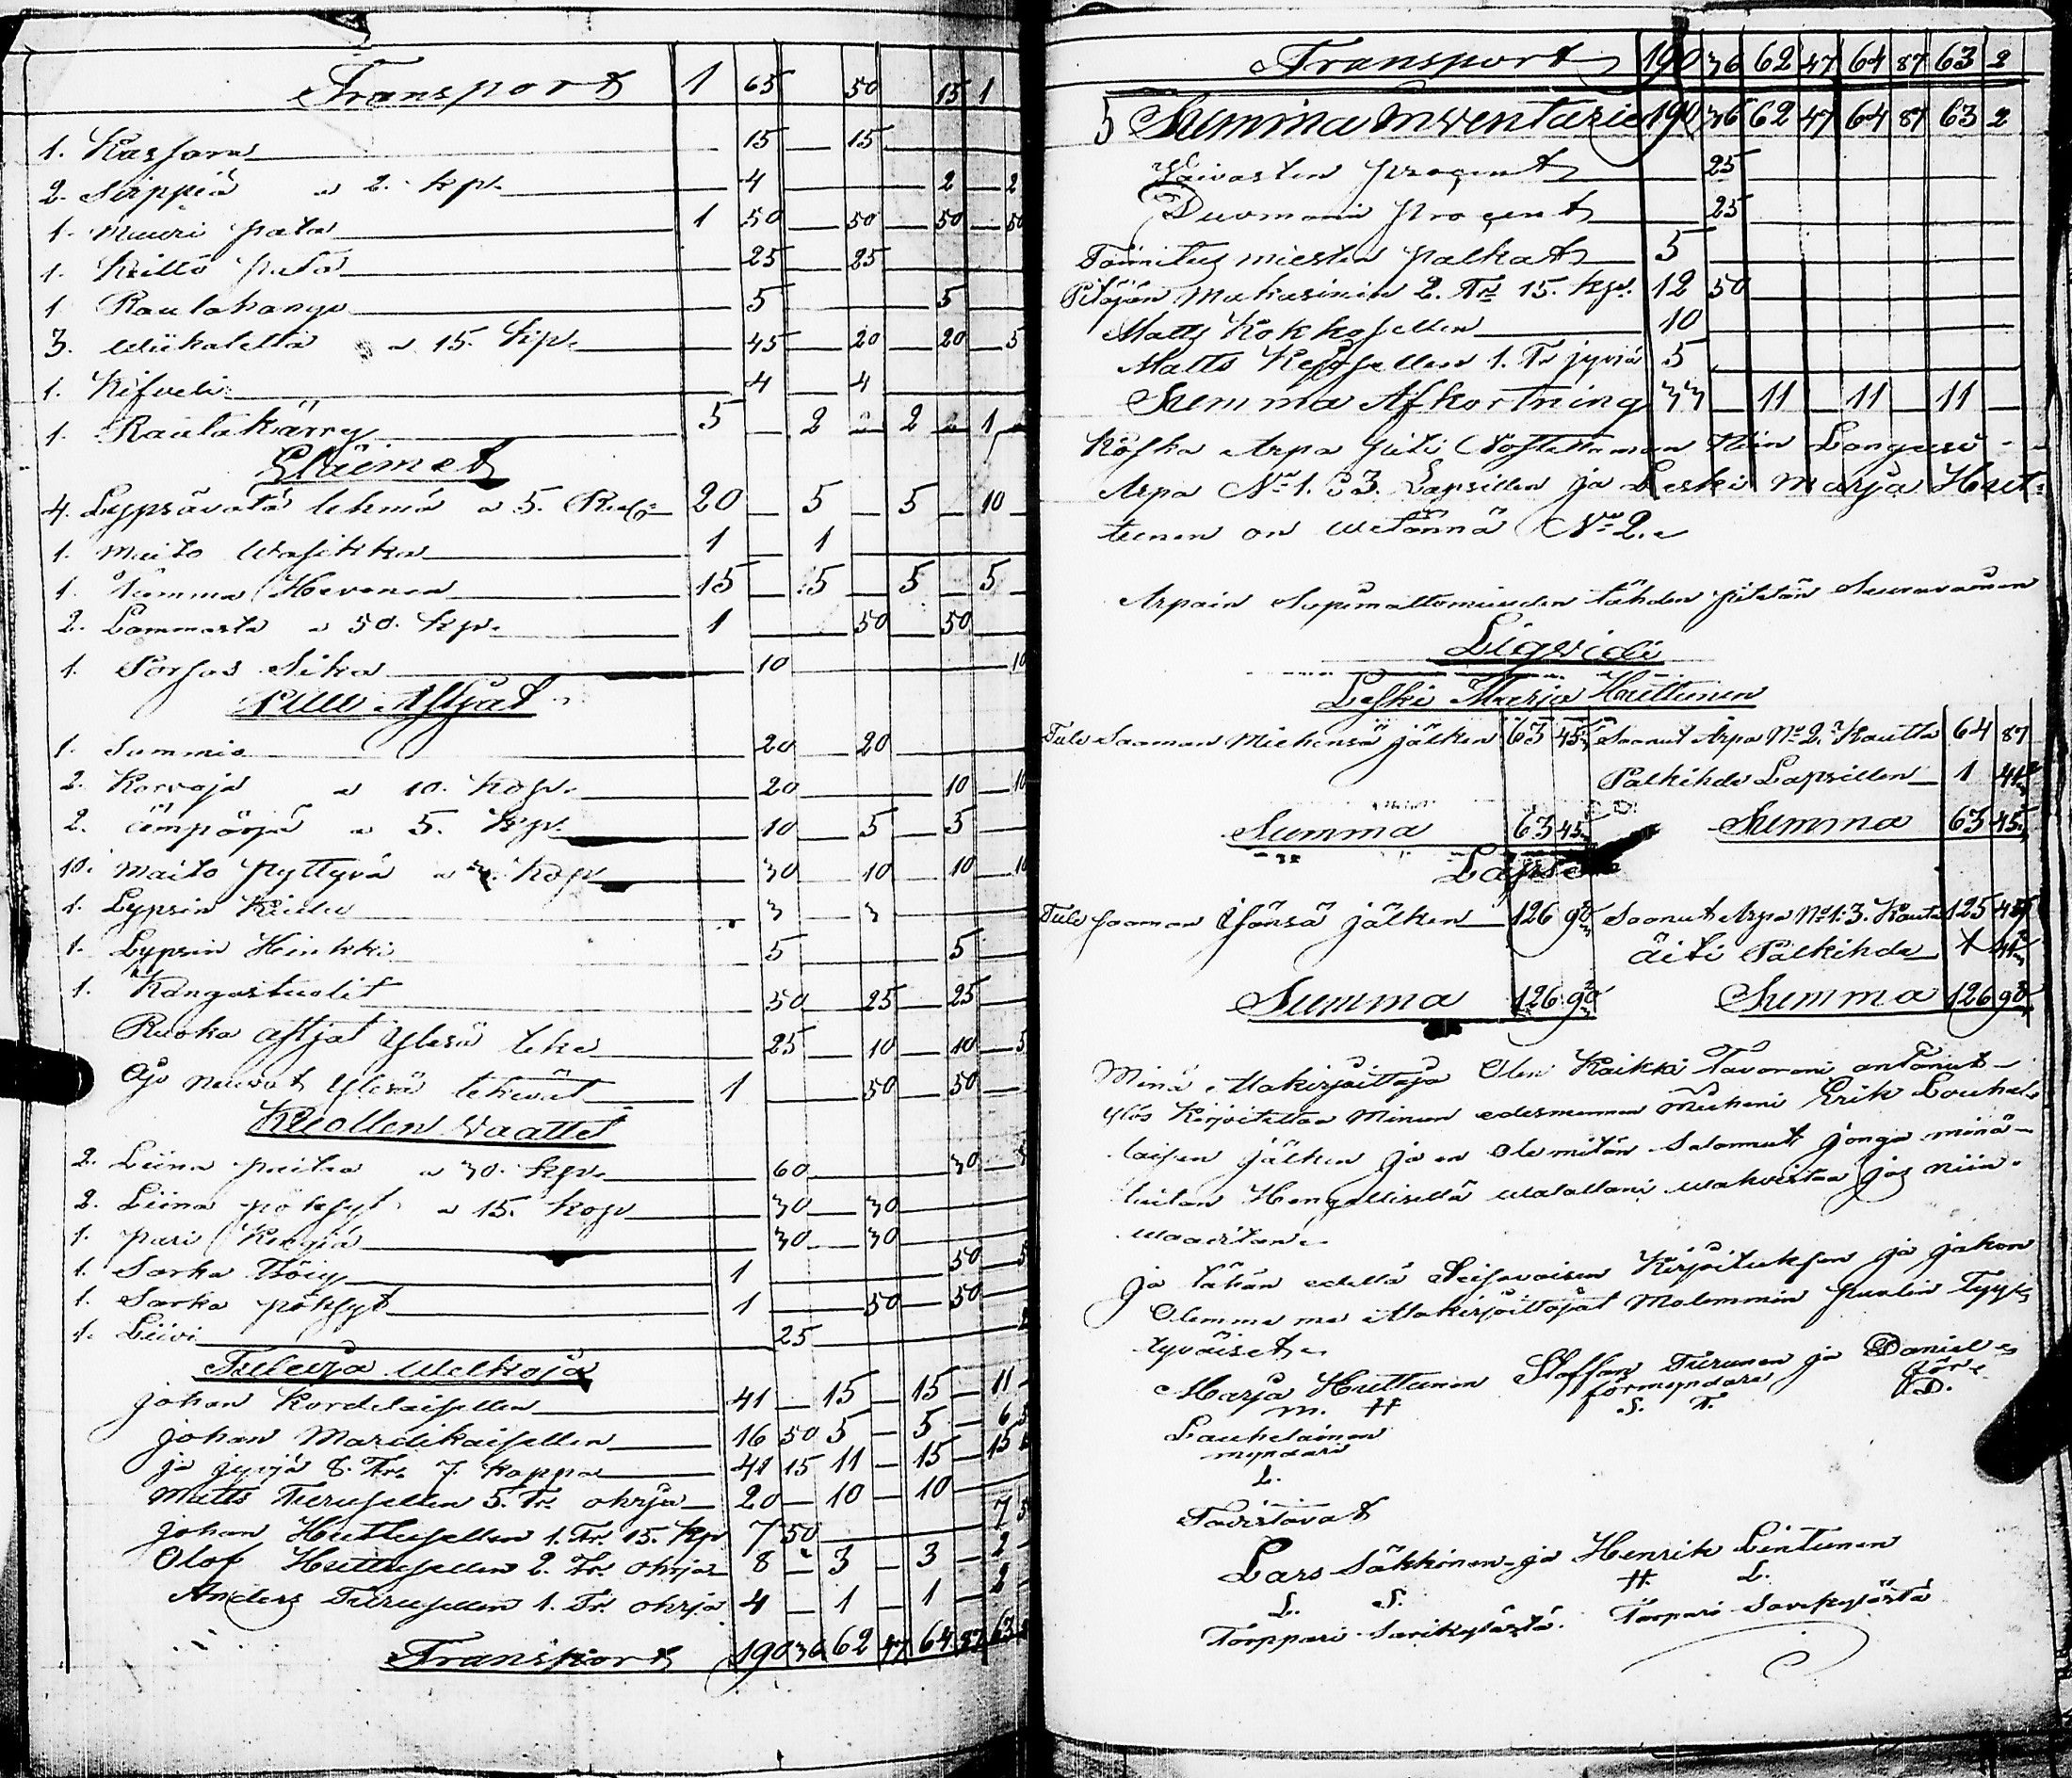 Transport 1 65 50 15 1
1. Kassara 15 15
2. Sirppiä a 2. kp. 4 2 2
1. Muuri pata 1 50 50 50 50
1. Keittö pata 25 25
1 Rautahango 5 5
3. wiikatetta a 15. kp. 45 20 20 5
1. Kifveli 4 4
1. Rautakärry 5 2 2 1
Eläimet
4. Lypsävätä lehmä a 5. Rubl 20 5 5 10
1. Muito wasikka 1 1
1. Tamma Hevonen 15 5 5 5
2. Lammasta a 50. kp. 1 50 50
1. Porsas Sika 10 10
Puu Astjat
1. Sammio 20 20
2. Korvoja a 10. kop. 20 10 10
2. ämpärjä a 5. kp. 10 5 5
10. Maito pyttyvä a 3. kop 30 10 10 10
1. Lypsin Kiulu 3 3
1. Lypsin Heinkki 5 5
1. Kangastuolit 50 25 25
Ruoka astjat ylesä teke 25 10 10 5
Ajo neuvot ylesä tekevät 1 50 50
Kuollen vaattet
2. Liina paitaa a 30. kp. 60 30
2. Liina pöksyt a 15. kop 30 30
1. pari Kengiä 30 30
1. Sarka Tröiy 1 50
1. Sarka pöksyt 1 50 50
1. Liivi 25
Tulevja welkoja
Johan Kordelaisellen 41 15 15 11
Johan Mardikaisellen 16 50 5 5 6
ja jyvjä 8. Tr. 7. kappa 41 15 11 15 15
Matts Turusellen 5. Tr. ohrja 20 10 10
Johan Huttusellen 1. Tr. 15. kp 7 50 7
Olof Huttusellen 2. Tr. ohrja 8 3 3 2
Anders Turusellen 1. Tr. ohrja 4 1 1 2
Transport 190 36 62 47 64 87 63 2
Transport 190 36 62 47 64 87 63 2
5 Summa Inventarie 190 36 62 47 64 87 63 2
Vaivasten procent 25
Duomarin procent 25
Toimitus miesten palkat 5
Pitäjän Makasinin 2. Tr 15. kp. 12 50
Matts Kokkosellen 10
Matts Kessosellen 1. Tr jyviä 5
Summa Afkortning 33 11 11 11
Koska Arpa yiti Nostettaman Niin Langeisi
Arpa No 1. 3. Lapsillen ja Leski Marja Hut-
tunen on wetännä No 2.
Arpain Sopimattomuuden tähden pitätän Seuravainen
Liqvidi
Leski Marja Huttunen
Tule Saaman Miehensä jälken 63 45 Saanut Arpa No 2. Kautta 64 87
Palkihde Lapsillen 1 41
Summa 63 45 Summa 63 45
Lapset
Tule saaman Isänsä jälken 126 90 Saanut Arpa No 1. 3. Kauta 125 49
äiti Palkihde 1 41
Summa 126 90 Summa 126 90
Minä Allakirjoittaja Olen Kaikki Tavorani antanut
ylös Kirjoitettaa Minun edesmennen Mieheni Erik Louhe-
laisen jälken ja en ole mitän Salannut jonga minä
tuitan Hengellisellä walallani wahvistaa jos niin
waaditan.
Ja tähän edellä Seisovaisen Kirjoituksen ja jakon
Olemma me Allakirjoittajat Molemmin puolin Tyy-
tyväiset.
Marja Huttunen Staffans Turunen ja Daniel
m. H förmyndare för-
S. T. D.
Lauhelainen
myndari
L.
Todistavat
Lars Säkkinen ja Henrik Lintunen
L. S. H. L.
Torppari Sarikylästä. Torpari Sarikylästä